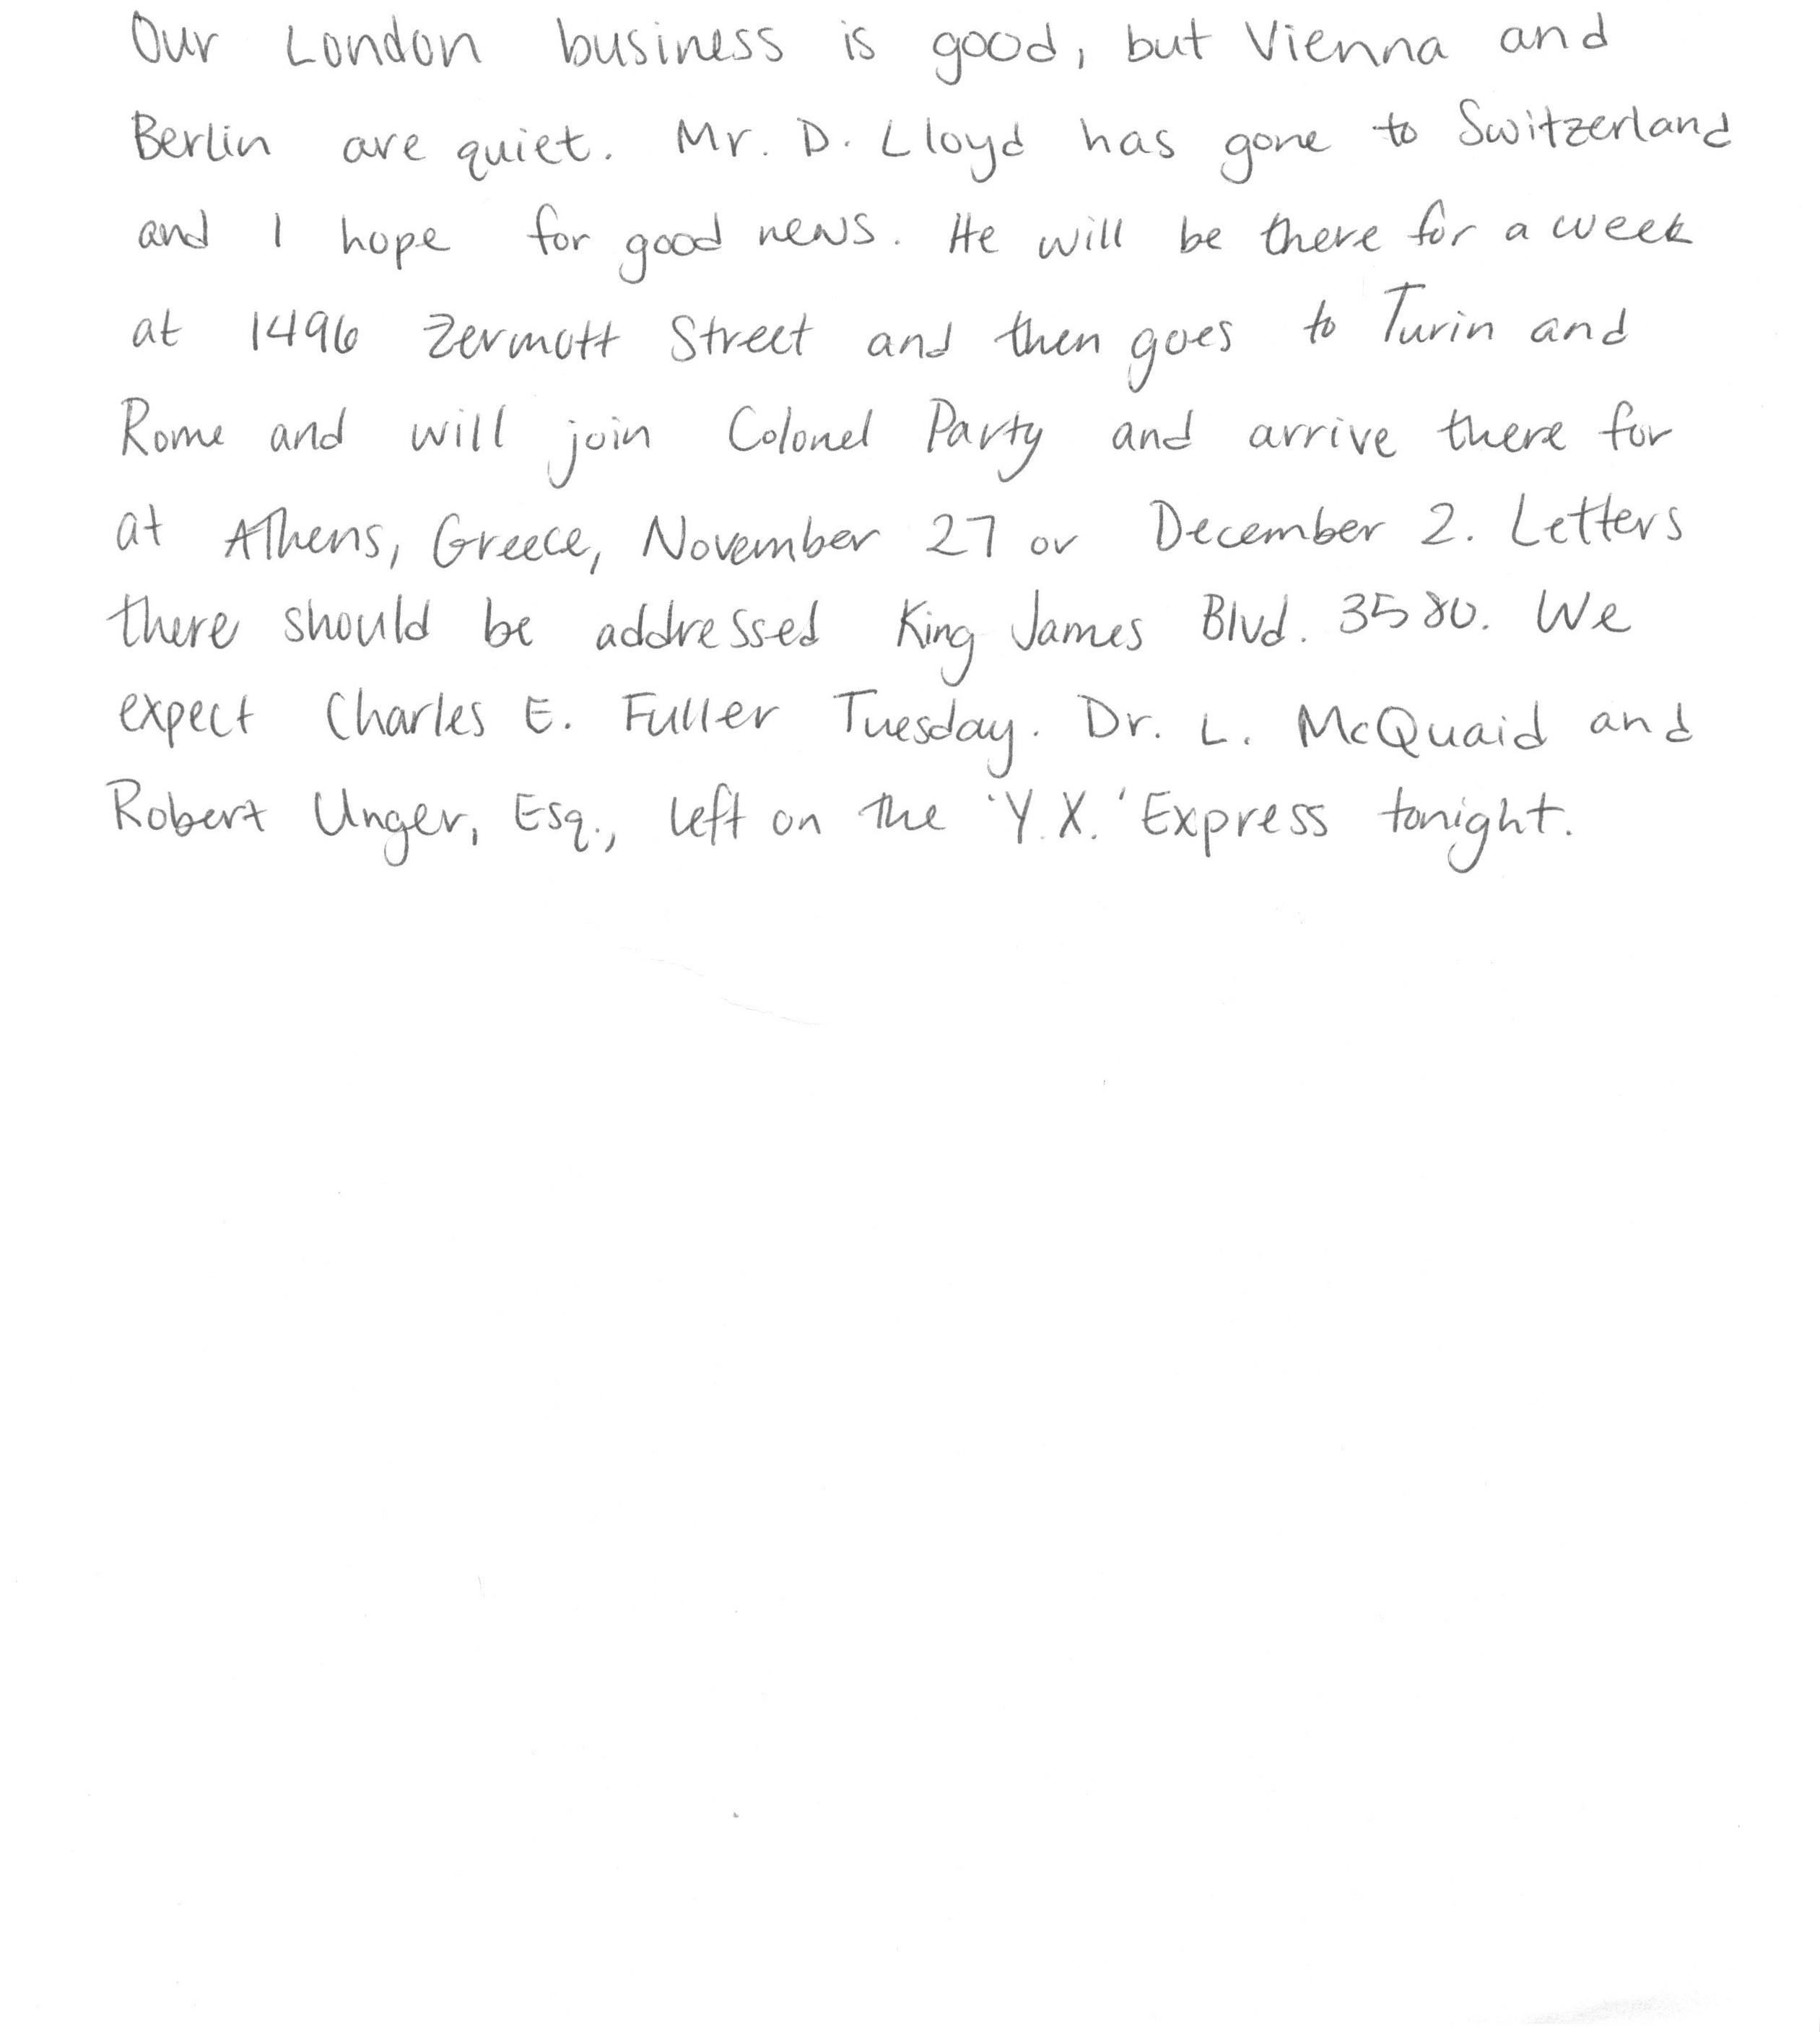 Our London business is good, but Vienna and
Berlin are quiet. Mr. D. Lloyd has gone to Switzerland
and I hope for good news. He will be there for a week
at 1496 Zermott Street and then goes to Turin and
Rome and will join Colonel Party and arrive there for
at Athens, Greece, November 27 or December 2. Letters
there should be addressed King James Blvd. 3580. We
expect Charles E. Fuller Tuesday. Dr. L. McQuaid and
Robert Unger, Esq., left on the 'Y.X.' Express tonight.